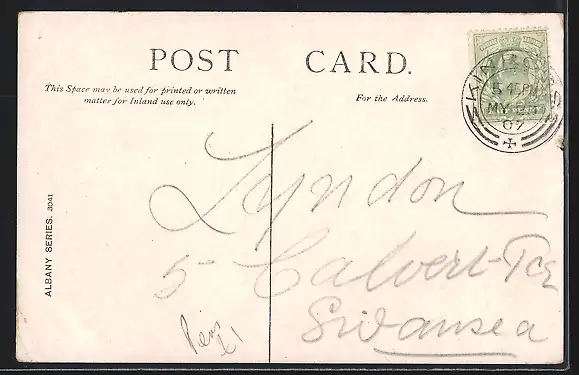 POST CARD.
This Space may be used for printed or written
matter for Inland use only.
For the Address.
5 45 PM
MY
07
ALBANY SERIES. 3041
Lyndon
5 Calvert-Tce
Swansea
£1